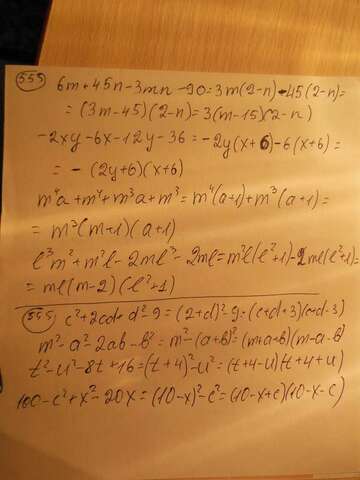 555 6m+45n-3mn-90=3m(2-n)-45(2-n)=
=(3m-45)(2-n)=3(m-15)(2-n)
-2xy-6x-12y-36=-2y(x+6)-6(x+6)=
=-(2y+6)(x+6)
m⁴a+m⁴+m³a+m³=m⁴(a+1)+m³(a+1)=
=m³(m+1)(a+1)
l³m²+m²l-2ml³-2ml=m²l(l²+1)-2ml(l²+1)=
=ml(m-2)(l²+1)
555 c²+2cd+d²-9=(2+d)²-9=(c+d+3)(c+d-3)
m²-a²-2ab-b²=m²-(a+b)²=(m+a+b)(m-a-b)
t²-u²-8t+16=(t+4)²-u²=(t+4-u)(t+4+u)
100-c²+x²-20x=(10-x)²-c²=(10-x+c)(10-x-c)